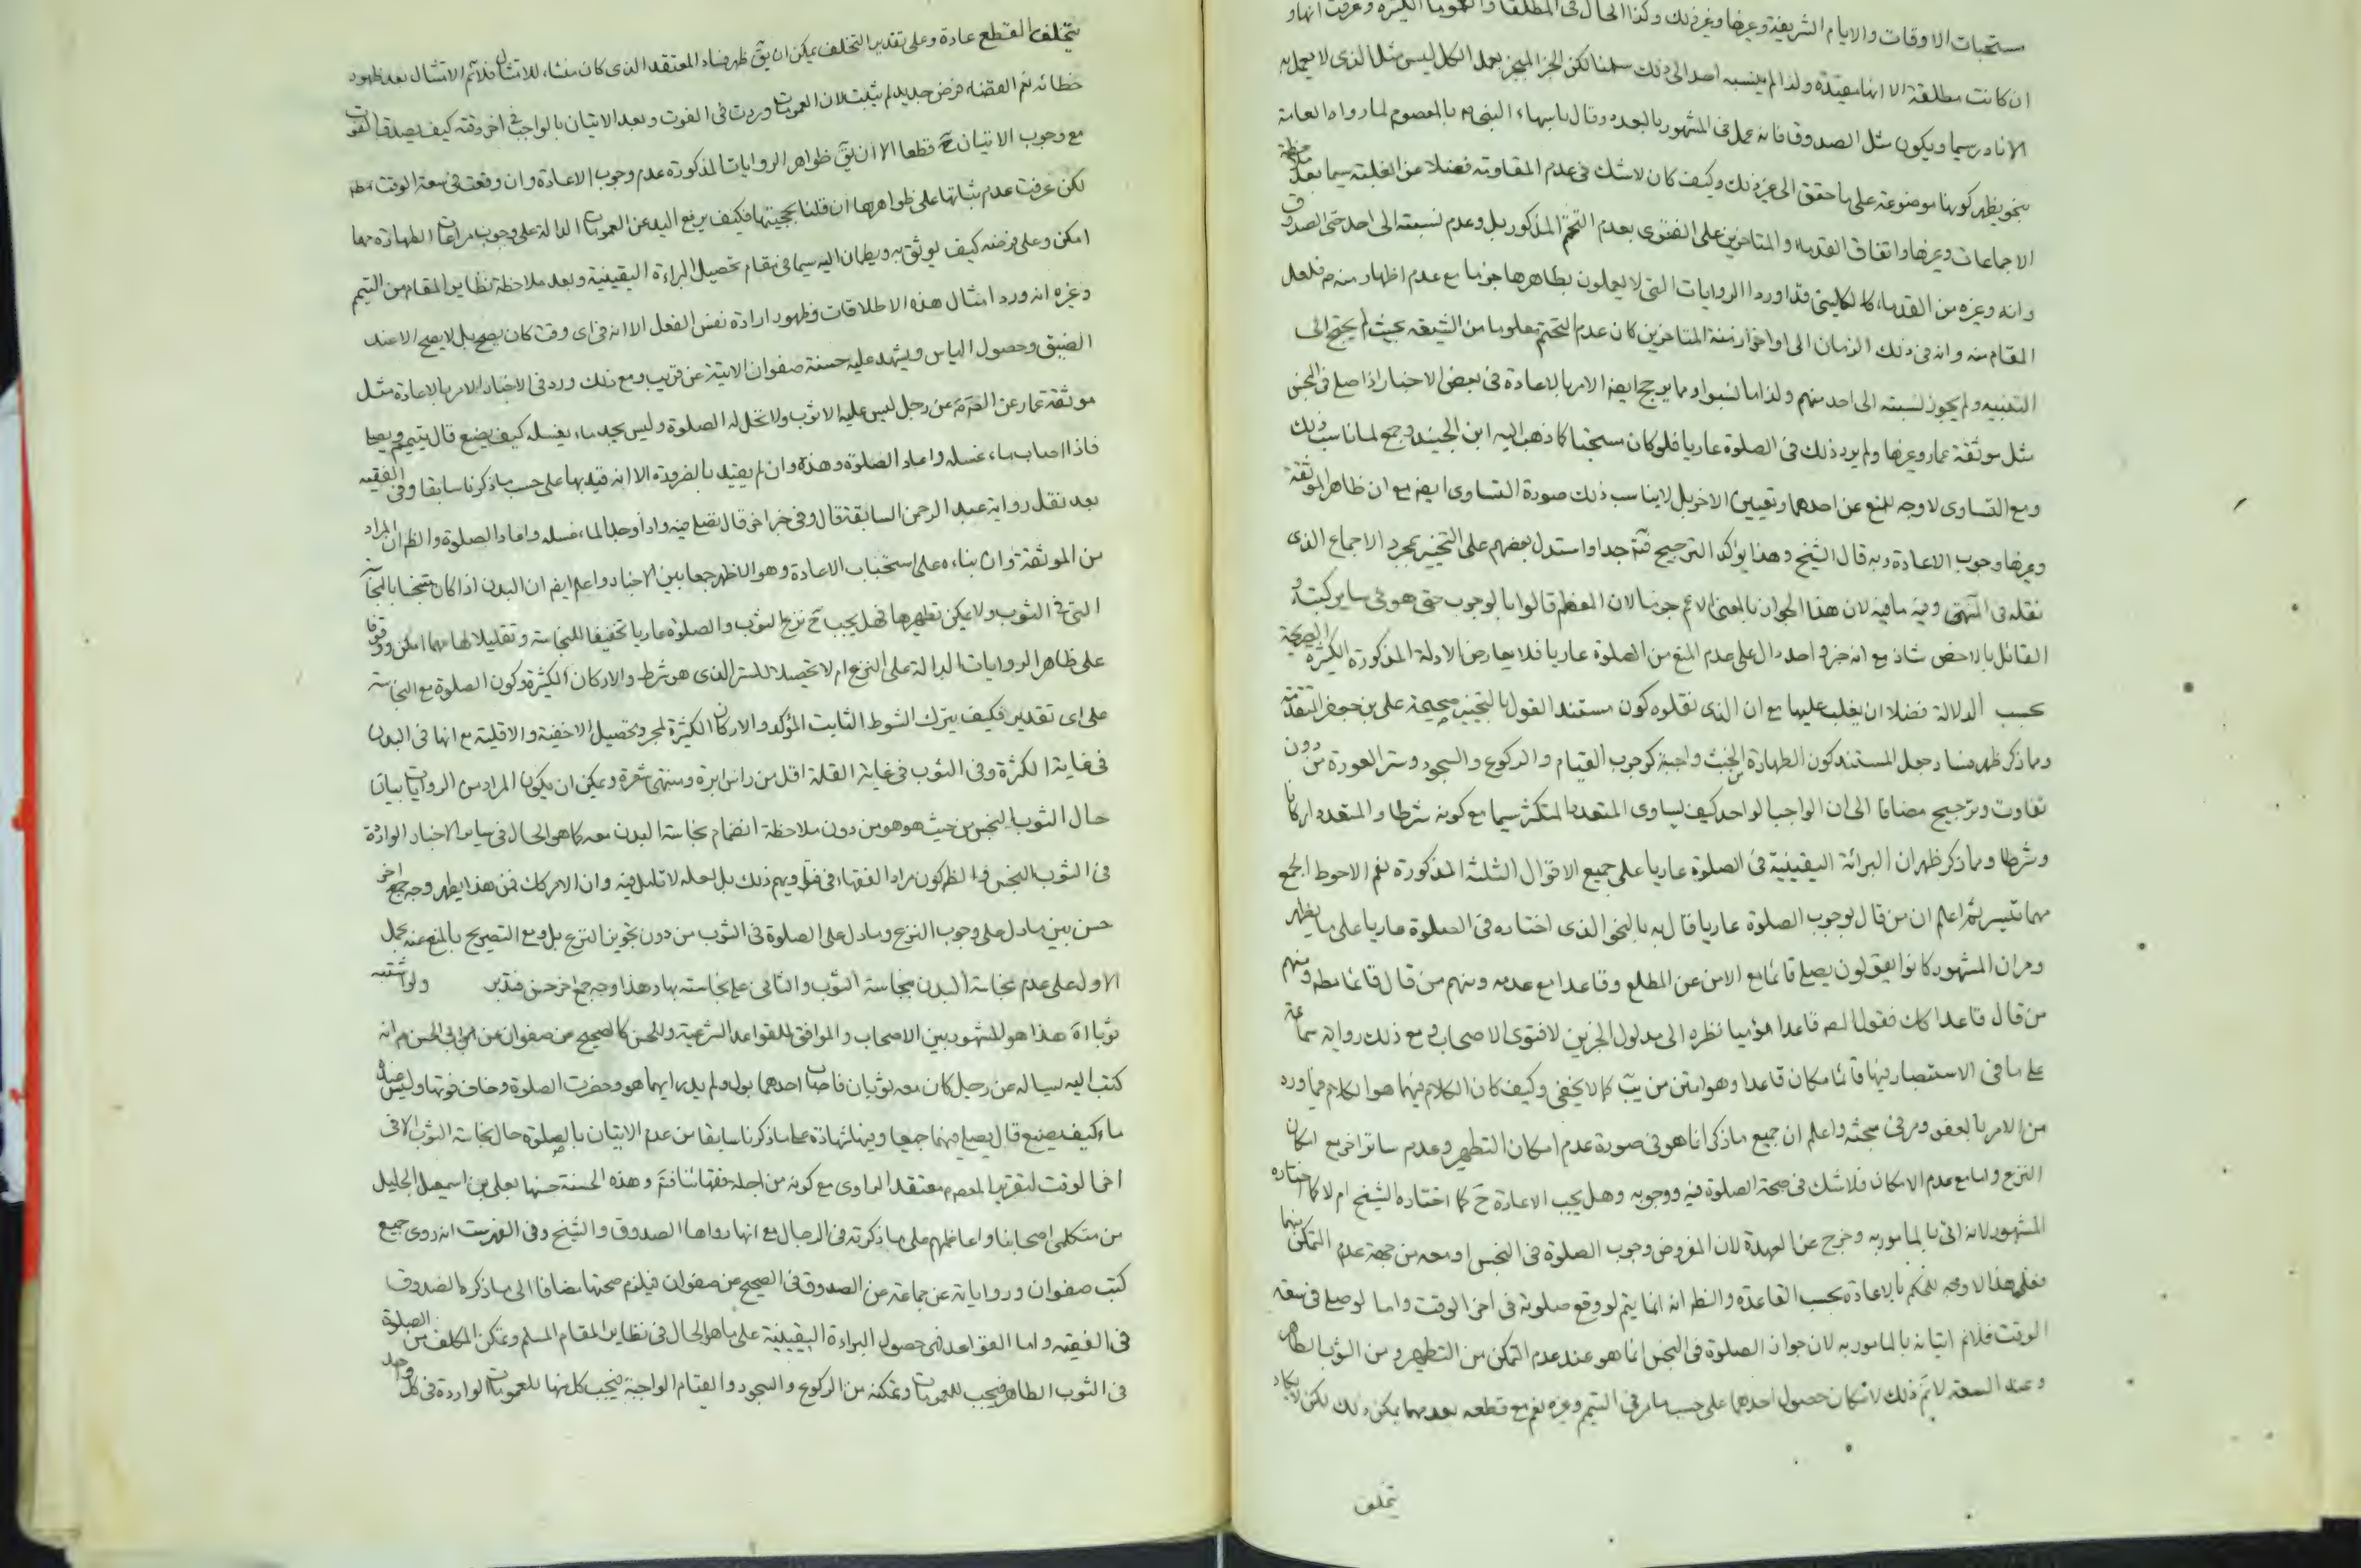 مستحبات الاوقات والايام الشريفة وغيرها وغير ذلك وكذا الحال في المطلقا والعموما الكثيرة وعرفت انها و
ان كانت مطلقة الا انها مقيدة ولذا لم ينسبه احد الى ذلك سلمنا لكن الخبر المنجبر بعمل الكل ليس مثل الذى لا يعمل به
الا نادر سيما ويكون مثل الصدوق فانه عمل في المشهور بالبعده وقال باسهاء النبي ص بالمعصوم لما رواه العامة
بنحو يظهر كونها موضوعة على ما حقق الى غير ذلك وكيف كان لا شك في عدم المقاومة فضلا عن الغلبة سيما بعد ملاحظة
الاجماعات وغيرها واتفاق القدماء والمتاخرين على الفتوى بعدم التحتم المذكور بل وعدم نسبته الى احد حتى الصدوق
وانه وغيره من القدماء كالكليني قد اوردا الروايات التى لا يعملون بظاهرها جزما مع عدم اظهار منهم فلعل
المقام منه وانه في ذلك الزمان الى اواخر ازمنة المتاخرين كان عدم التحتم معلوما من الشيعة بحيث لم يحتج الى
التنبيه ولم يجوز نسبته الى احد منهم ولذا ما نسبوا ومما يرجح ايضا الامر بالاعادة في بعض الاخبار اذا صلى في النجس
مثل موثقة عمار وغيرها ولم يرد ذلك في الصلوة عاريا فلو كان مستحبا كما ذهب اليه ابن الجنيد وجمع لما ناسب ذلك
ومع التساوى لا وجه للمنع عن احدهما وتعيين الاخر بل لا يناسب ذلك صورة التساوى ايضا مع ان ظاهر الموثقة
وغيرها وجوب الاعادة وبه قال الشيخ وهذا يؤكد الترجيح فتم جدا واستدل بعضهم على التخيير بمجرد الاجماع الذى
نقله في المنتهى وفيه ما فيه لان هذا الجواز بالمعنى الاعم جزما لان المعظم قالوا بالوجوب حتى هو في ساير كتبه و
القائل بالاخص شاذ مع انه خبر واحد دال على عدم المنع من الصلوة عاريا فلا يعارض الادلة المذكورة الكثيرة الصريحة
بحسب الدلالة فضلا ان يغلب عليها مع ان الذى نقلوه كون مستند القول بالتخيير صحيحة على بن جعفر المتقدمة
ومما ذكر ظهر فساد جعل المستند كون الطهارة من الخبث واجبة كوجوب القيام والركوع والسجود وستر العورة من دون
تفاوت وترجيح مضافا الى ان الواجب الواحد كيف يساوى المتعدد المتكثر سيما مع كونه شرطا والمتعدد اركانا
وشرطا ومما ذكر ظهر ان البرائة اليقينية في الصلوة عاريا على جميع الاقوال الثلثة المذكورة نعم الاحوط الجمع
مهما تيسر ثم اعلم ان من قال بوجوب الصلوة عاريا قال به بالنحو الذى اختاره في الصلوة عاريا على ما يظهر
ومر ان المشهور كانوا يقولون يصلي قائما مع الامن عن المطلع وقاعدا مع عدمه ومنهم من قال قائما مطه ومنهم
من قال قاعدا كك فقول المص قاعدا مؤميا نظره الى مدلول الخبرين لا فتوى الاصحاب ومع ذلك رواية سماعة
على ما في الاستبصار فيها قائما مكان قاعدا وهو امتن من يب كما لا يخفى وكيف كان الكلام فيهما هو الكلام فيما ورد
من الامر بالعفو ومر في مبحثه واعلم ان جميع ما ذكر انما هو في صورة عدم امكان التطهير وعدم ساتر اخر مع امكان
النزع واما مع عدم الامكان فلا شك في صحة الصلوة فيه ووجوبه وهل يجب الاعادة ح كما اختاره الشيخ ام لا كما اختاره
المشهور لانه اتى بالمامور به وخرج عن العهدة لان المفروض وجوب الصلوة في النجس او معه من جهة عدم التمكن منها
فعلى هذا لا وجه للحكم بالاعادة بحسب القاعدة والظم انه انما يتم لو وقع صلوته في اخر الوقت واما لو صلى في سعة
الوقت فلا نم اتيانه بالمامور به لان جواز الصلوة في النجس انما هو عند عدم التمكن من التطهير ومن الثوب الطاهر
وعند السعة لا نم ذلك لامكان حصول احدهما على حسب ما مر في التيمم وغيره نعم مع قطعه بعد مهما يمكن ذلك لكن لا يكاد
يتخلف
يتخلف القطع عادة وعلى تقدير التخلف يمكن ان يق ظهر فساد المعتقد الذى كان منشاء للامتثال فلا نم الامتثال بعد ظهور
خطائه نعم القضاء فرض جديد لم يثبت لان العمومات وردت في الفوت وبعد الاتيان بالواجب في اخر وقته كيف يصدق الفوت
مع وجوب الاتيان ح قطعا الا ان يق ظواهر الروايات المذكورة عدم وجوب الاعادة وان وقعت في سعة الوقت مطه
لكن عرفت عدم بنائها على ظواهرها ان قلنا بحجيتها فكيف يرفع اليد عن العمومات الدالة على وجوب مراعات الطهارة مهما
امكن وعلى فرضه كيف يوثق به ويطمان اليه سيما في مقام تحصيل البراءة اليقينية وبعد ملاحظة نظاير المقام من التيمم
وغيره انه ورد امثال هذه الاطلاقات وظهور ارادة نفس الفعل الا انه في اى وقت كان يصح بل لا يصح الا عند
الضيق وحصول الياس ويشهد عليه حسنة صفوان الاتية عن قريب ومع ذلك ورد في الاخبار الامر بالاعادة مثل
موثقة عمار عن الص ع عن رجل ليس عليه الا ثوب ولا تحل له الصلوة وليس يجد ماء يغسله كيف يصنع قال يتيمم ويصلى
فاذا اصاب ماء غسله واعاد الصلوة وهذه وان لم يقيد بالضرورة الا انه قيد بها على حسب ما ذكرنا سابقا وفي الفقيه
بعد نقل رواية عبد الرحمن السابقة قال وفي خبر اخر قال يصلى فيه واذا وجد الماء غسله واعاد الصلوة والظم ان المراد
من الموثقة وان بناءه على استحباب الاعادة وهو الاظهر جمعا بين الاخبار واعلم ايضا ان البدن اذا كان متنجسا بالنجاسة
التى في الثوب ولا يمكن تطهيرها فهل يجب ح نزع الثوب والصلوة عاريا تخفيفا للنجاسة وتقليلا لها مهما امكن ووقوفا
على ظاهر الروايات الدالة على النزع ام لا تحصيلا للستر الذى هو شرط والاركان الكثيرة وكون الصلوة مع النجاسة
على اى تقدير فكيف يترك الشرط الثابت المؤكد والاركان الكثيرة لمجرد تحصيل الاخفية والاقلية مع انها في البدن
في غاية الكثرة وفي الثوب في غاية القلة اقل من راس ابرة ومنتهى شعرة ويمكن ان يكون المراد من الروايات بيان
حال الثوب النجس من حيث هو هو من دون ملاحظة انضمام نجاسة البدن معه كما هو الحال في ساير الاخبار الواردة
في الثوب النجس والظم كون مراد الفقهاء في فتاويهم ذلك بل لعله لا تامل فيه وان الامر كك فمن هذا يظهر وجه جمع اخر
حسن بين ما دل على وجوب النزع وما دل على الصلوة في الثوب من دون تجويز النزع بل ومع التصريح بالمنع عنه بحمل
الاول على عدم نجاسة البدن بنجاسة الثوب والثاني على نجاسته بها وهذا وجه جمع اخر حسن فتدبر ولو اشتبه
ثوبا اه هذا هو المشهور بين الاصحاب والموافق للقواعد الشرعية وللحسن كالصحيح من صفوان عن ابي الحسن ع انه
كتب اليه يساله عن رجل كان معه ثوبان فاصاب احدهما بول ولم يدر ايهما هو وحضرت الصلوة وخاف فوتها وليس عنده
ماء كيف يصنع قال يصلي فيهما جميعا وفيها شهادة على ما ذكرنا سابقا من عدم الاتيان بالصلوة حال نجاسة الثوب الا في
اخر الوقت لتقرير المعصوم معتقد الراوى مع كونه من اجلة فقهائنا فتم وهذه الحسنة حسنها بعلى بن اسمعيل الجليل
من متكلمي اصحابنا واعاظمهم على ما ذكرته في الرجال مع انها رواها الصدوق والشيخ وفي الفهرست انه روى جميع
كتب صفوان ورواياته عن جماعة عن الصدوق في الصحيح عن صفوان فيلزم صحتها مضافا الى ما ذكره الصدوق
في الفقيه واما القواعد فهى حصول البراءة اليقينية على ما هو الحال في نظاير المقام المسلم وتمكن المكلف من الصلوة
في الثوب الطاهر فيجب للعمومات وتمكنه من الركوع والسجود والقيام الواجبة فيجب كل منها للعمومات الواردة في كل واحد